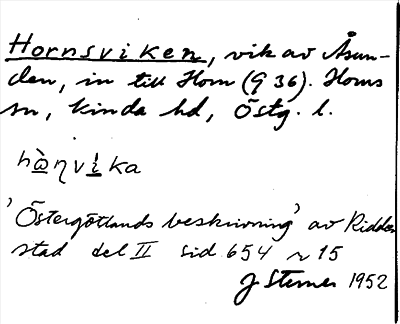 Hornsviken, vik av Åsun-
den, in till Horn (G 36). Horns
sn, Kinda hd, Östg. l.
hạ̀ṇvịka
'Östergötlands beskrivning' av Ridder
stad del II sid 654 r 15
J Sterner 1952